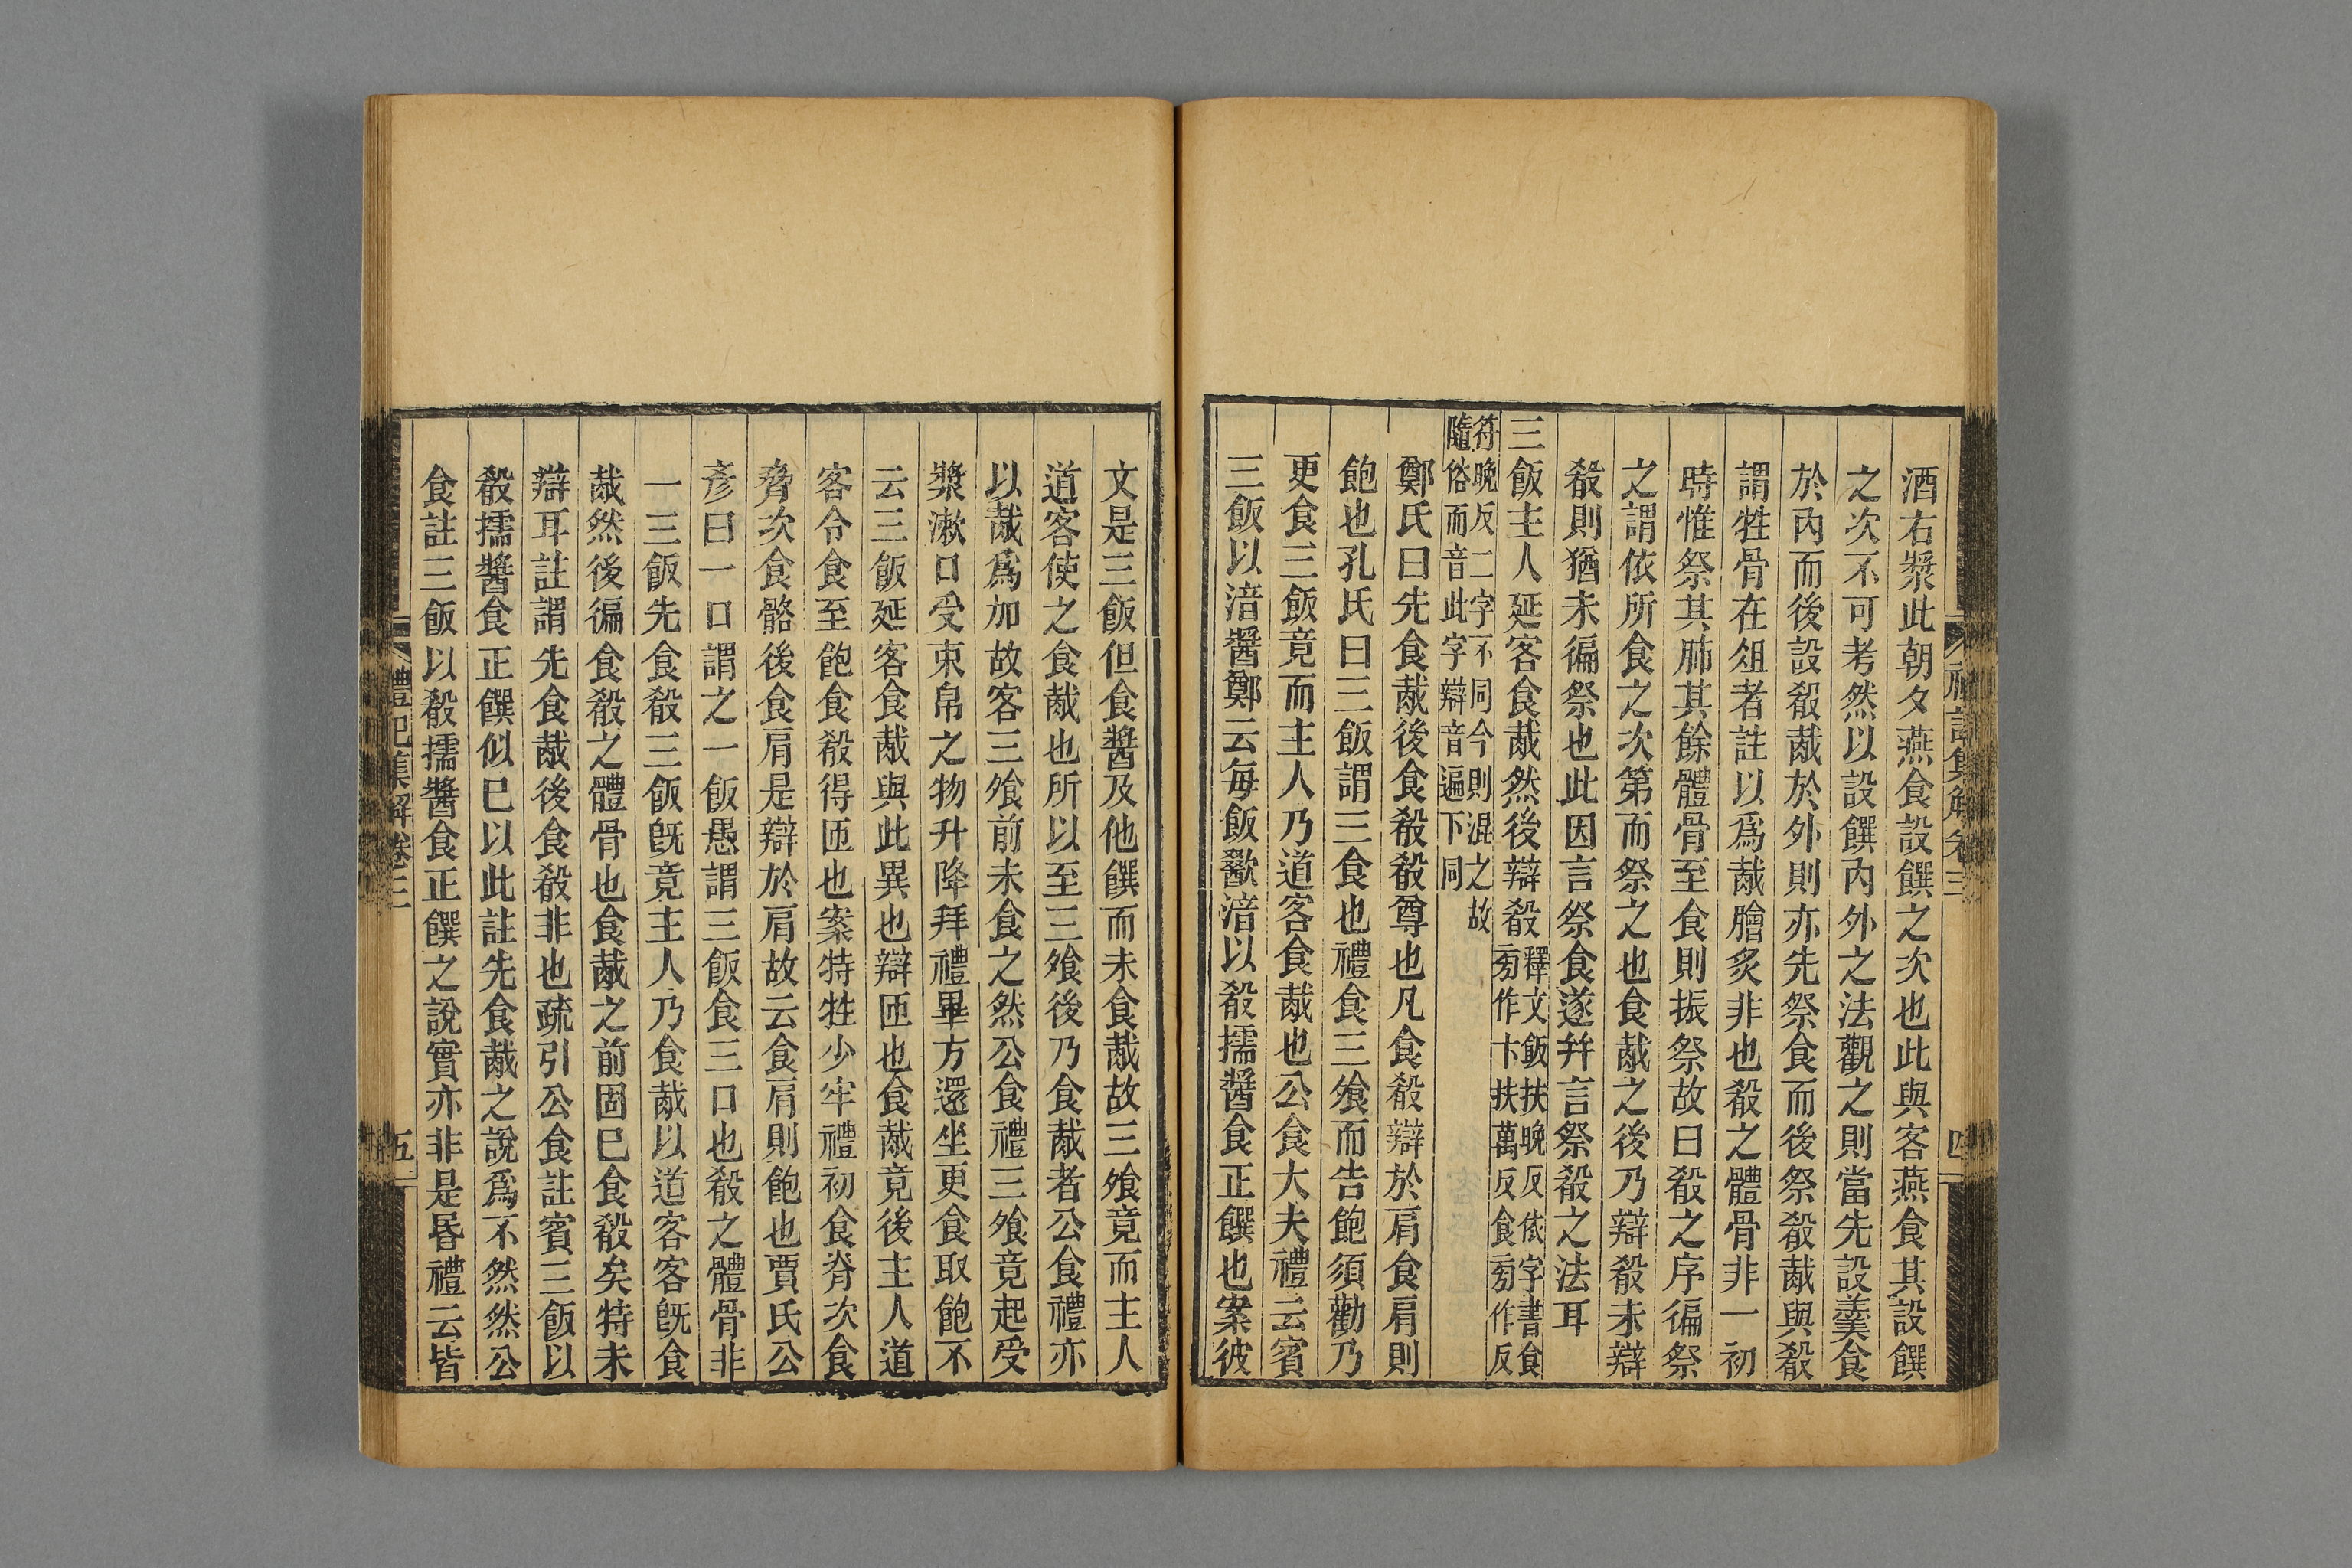 酒右漿此朝夕燕食設饌之次也此與客燕食其設饌
之次不可考然以設饌內外之法觀之則當先設羹食
於內而後設殽胾於外則亦先祭食而後祭殽胾與殽
謂牲骨在俎者註以爲胾膾炙非也殽之體骨非一初
時惟祭其肺其餘體骨至食則振祭故曰殽之序徧祭
之謂依所食之次第而祭之也食胾之後乃辯殽未辯
殽則猶未徧祭也此因言祭食遂幷言祭殽之法耳
三飯主人延客食胾然後辯殽
釋文飯扶晚反依字書食
旁作卞扶萬反食旁作反
符晚反二字不同今則混之故
隨俗而音此字辯音遍下同
鄭氏曰先食胾後食殽殽尊也凡食殽辯於肩食肩則
飽也孔氏曰三飯謂三食也禮食三飧而告飽須勸乃
更食三飯竟而主人乃道客食胾也公食大夫禮云賓
三飯以湆醬鄭云每飯歠湆以殽擩醬食正饌也案彼
禮記集解卷三
四
文是三飯但食醬及他饌而未食胾故三飧竟而主人
道客使之食胾也所以至三飧後乃食胾者公食禮亦
以胾爲加故客三飧前未食之然公食禮三飧竟起受
漿漱口受束帛之物升降拜禮畢方還坐更食取飽不
云三飯延客食胾與此異也辯匝也食胾竟後主人道
客令食至飽食殽得匝也案特牲少牢禮初食脊次食
脅次食骼後食肩是辯於肩故云食肩則飽也賈氏公
彥曰一口謂之一飯愚謂三飯食三口也殽之體骨非
一三飯先食殽三飯旣竟主人乃食胾以道客客旣食
胾然後徧食殽之體骨也食胾之前固已食殽矣特未
辯耳註謂先食胾後食殽非也疏引公食註賓三飯以
殽擩醬食正饌似已以此註先食胾之說爲不然然公
食註三飯以殽擩醬食正饌之說實亦非是昏禮云皆
禮記集解卷三
五